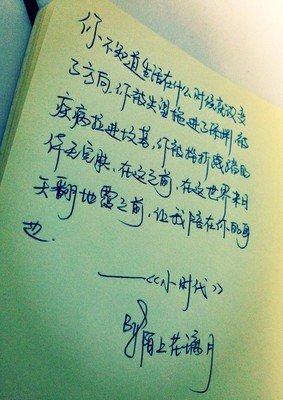 你不知道生活在什么时候就改变
了方向,你被失望拖进了深渊,被
疾病拉进坟墓,你被挫折践踏的
体无完肤,在这之前,在这世界末日
天翻地覆之前,让我陪在你的身
边.
——《小时代》
By陌上花月